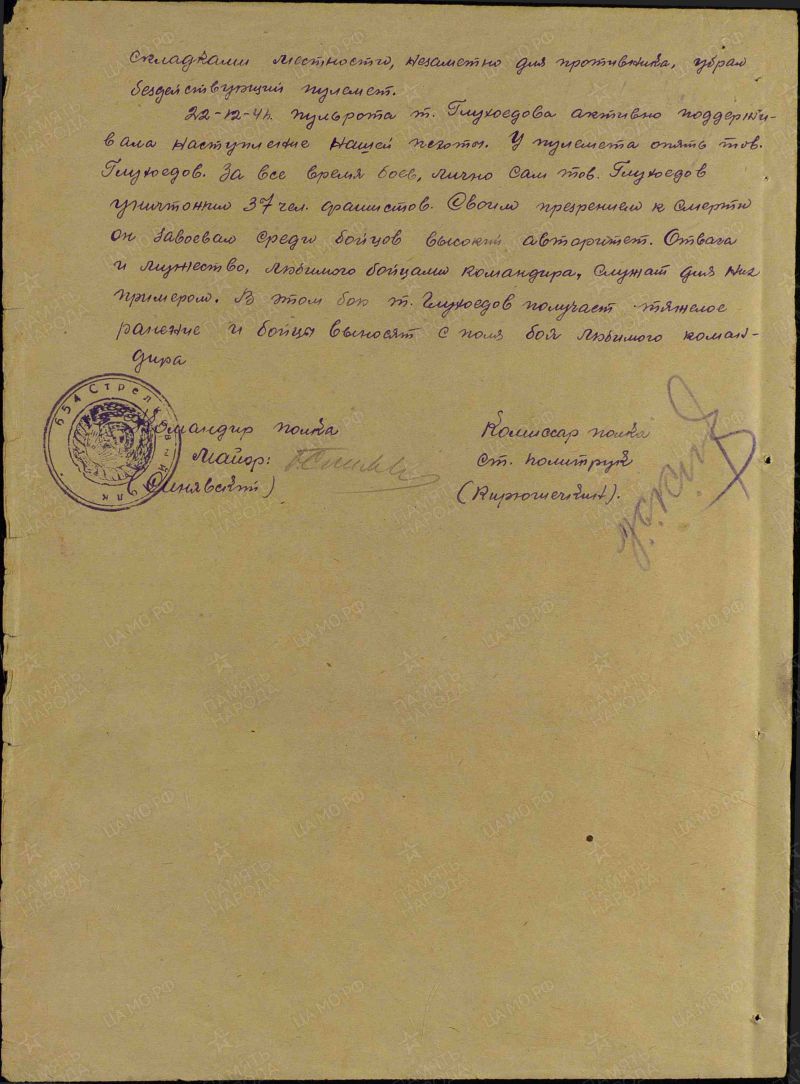 складками местности, незаметно для противника, убрал
бездействующий пулемет.
22-12-41 г. пульрота т. Глухоедова активно поддержи-
вала наступление нашей пехоты. У пулемета опять тов.
Глухоедов. За все время боев, лично сам тов. Глухоедов
уничтожил 37 чел. фашистов. Своим презрением к смерти
он завоевал среди бойцов высокий авторитет. Отвага
и мужество, любимого бойцами командира, служат для них
примером. В этом бою т. Глухоедов получает тяжелое
ранение и бойцы выносят с поля боя любимого коман-
дира
654 Стрелковый полк
Командир полка
Майор:
(Синявский)
Комиссар полка
ст. политрук
(Кирюшечкин).
ПАМЯТЬ НАРОДА
ЦАМО.РФ